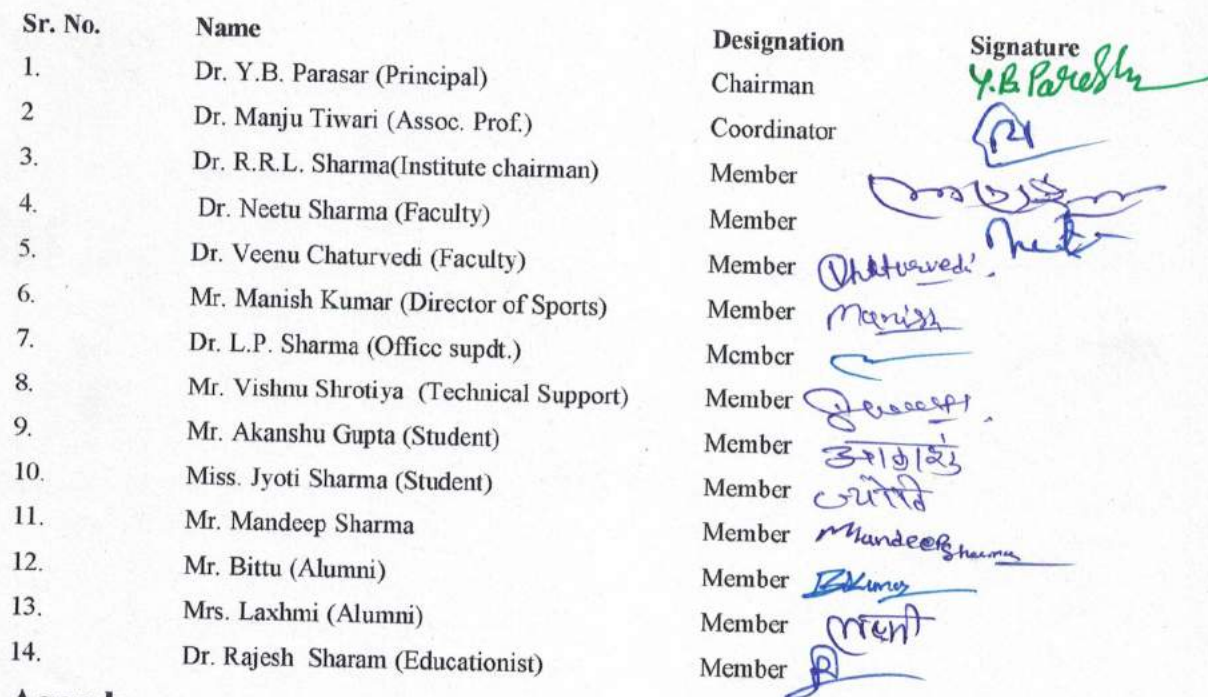 Sr. No. Name Designation Signature
1. Dr. Y.B. Parasar (Principal) Chairman Y.B. Parashar
2 Dr. Manju Tiwari (Assoc. Prof.) Coordinator
3. Dr. R.R.L. Sharma(Institute chairman) Member
4. Dr. Neetu Sharma (Faculty) Member
5. Dr. Veenu Chaturvedi (Faculty) Member VChaturvedi.
6. Mr. Manish Kumar (Director of Sports) Member Manish
7. Dr. L.P. Sharma (Office supdt.) Member
8. Mr. Vishnu Shrotiya (Technical Support) Member
9. Mr. Akanshu Gupta (Student) Member
10. Miss. Jyoti Sharma (Student) Member ज्योति
11. Mr. Mandeep Sharma Member Mandeep Sharma
12. Mr. Bittu (Alumni) Member BKumar
13. Mrs. Laxhmi (Alumni) Member लक्ष्मी
14. Dr. Rajesh Sharam (Educationist) Member